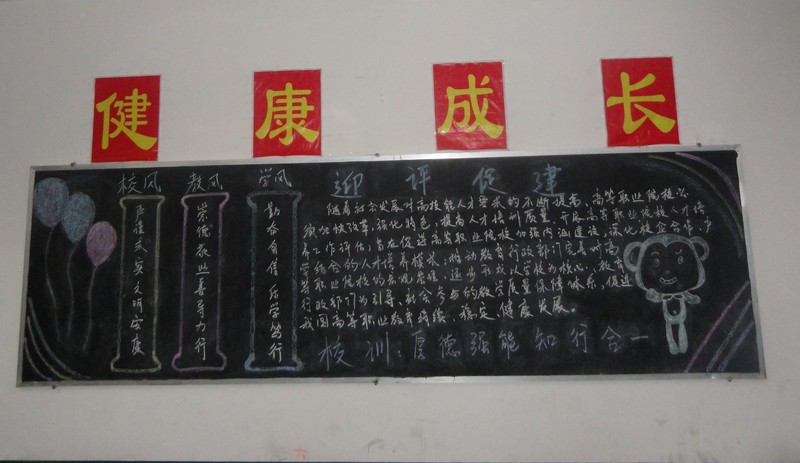 健康成长
校风 教风 学风
严谨求实文明安康
崇德敬业善导力行
勤奋自信 乐学笃行
迎评促建
随着社会发展对高技能人才要求的不断提高,高等职业院校必
须加快改革,强化特色,提高人才培训质量。开展高等职业院校人才培
养工作评估,旨在促进高等职业院校加强内涵建设,深化校企合作、产
学结合的人才培养模式,推动教育行政部门完善对高
等
行政部门为引导、社会参与的教学质量保障体系,促进
我国高等职业教育持续、稳定、健康发展。
校训:厚德强能 知行合一